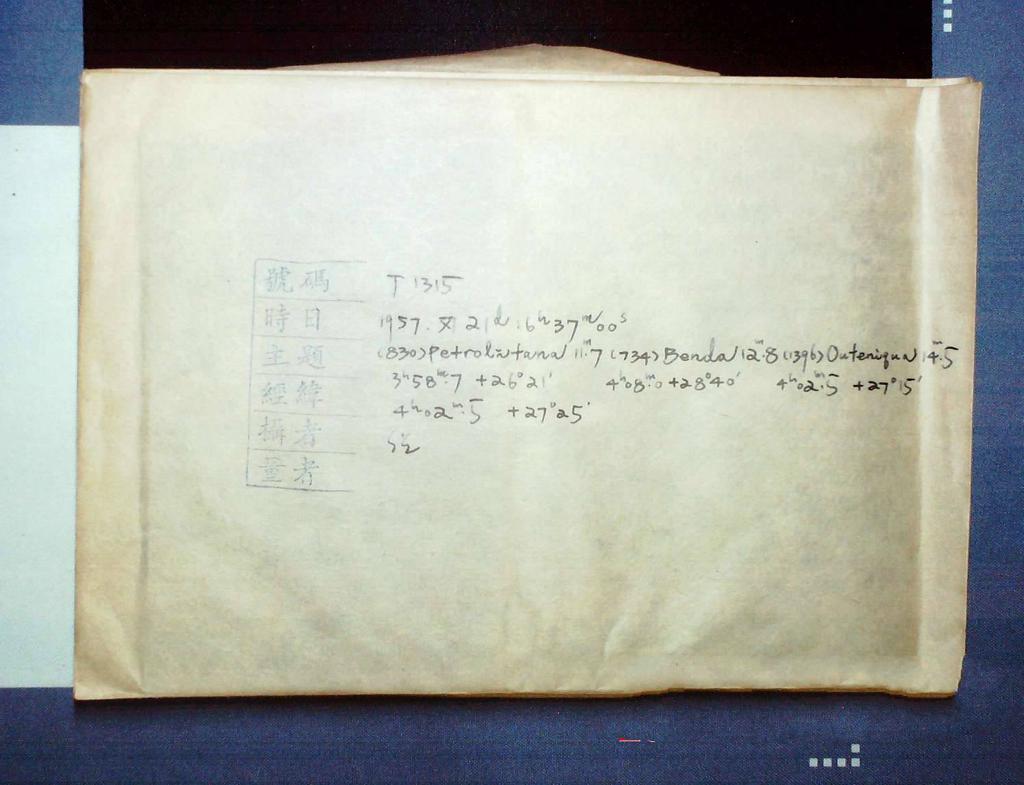 號碼 T 1315
時日 1957. XI 21ᵈ 16ʰ37ᵐ00ˢ
主題 (830)Petrolitana 11ᵐ.7 (734)Benda 12ᵐ.8 (1396)Outeniqua 14ᵐ.5
經緯 3ʰ58ᵐ.7 +26°21' 4ʰ08ᵐ.0 +28°40' 4ʰ02ᵐ.5 +27°15'
攝者 4ʰ02ᵐ.5 +27°25'
量者